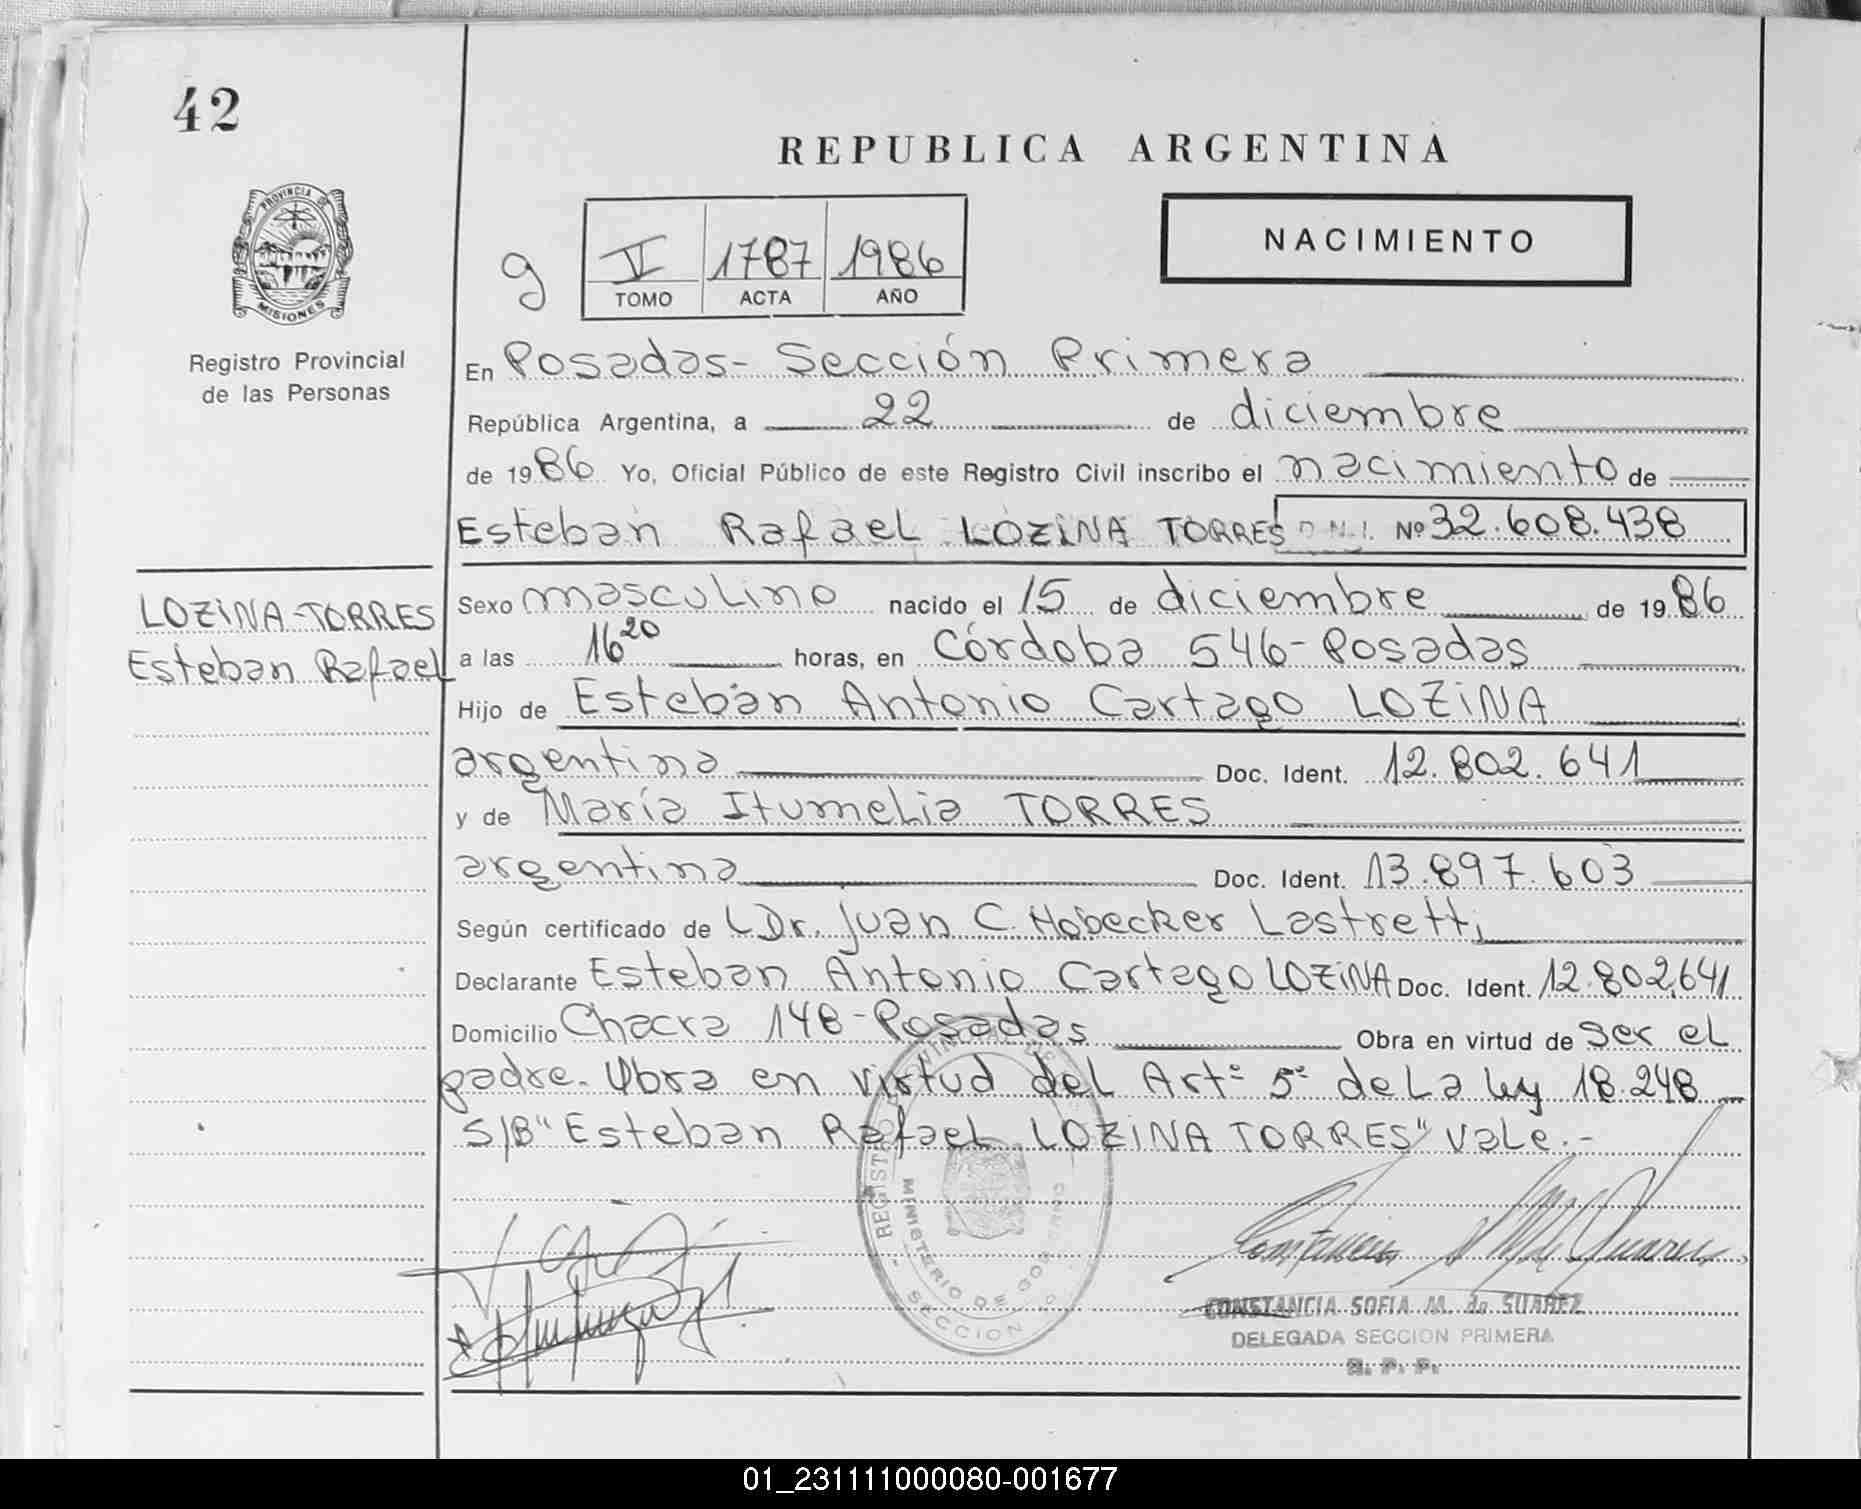 42
REPUBLICA ARGENTINA
PROVINCIA DE
MISIONES
Registro Provincial
de las Personas
9
II 1787 1986
TOMO ACTA AÑO
NACIMIENTO
En Posadas - Sección Primera
República Argentina, a 22 de diciembre
de 1986 Yo, Oficial Público de este Registro Civil inscribo el nacimiento de
Esteban Rafael LOZINA TORRES D.N.I. Nº 32.608.438
LOZINA-TORRES
Esteban Rafael
Sexo masculino nacido el 15 de diciembre de 1986
a las 16 20 horas, en Córdoba 546 - Posadas
Hijo de Esteban Antonio Cartago LOZINA
argentina Doc. Ident. 12.802.641
y de María Itumelia TORRES
argentina Doc. Ident. 13.897.603
Según certificado de Dr. Juan C. Hobecker Lastretti
Declarante Esteban Antonio Cartago LOZINA Doc. Ident. 12.802.641
Domicilio Chacra 148 - Posadas Obra en virtud de ser el
padre. Obra en virtud del Artº 5º de La Ley 18.248
S/B "Esteban Rafael LOZINA TORRES" VaLe.-
MINISTERIO DE GOBIERNO
SECCION
CONSTANCIA SOFIA M. de SUAREZ
DELEGADA SECCION PRIMERA
R. P. P.
01_231111000080-001677